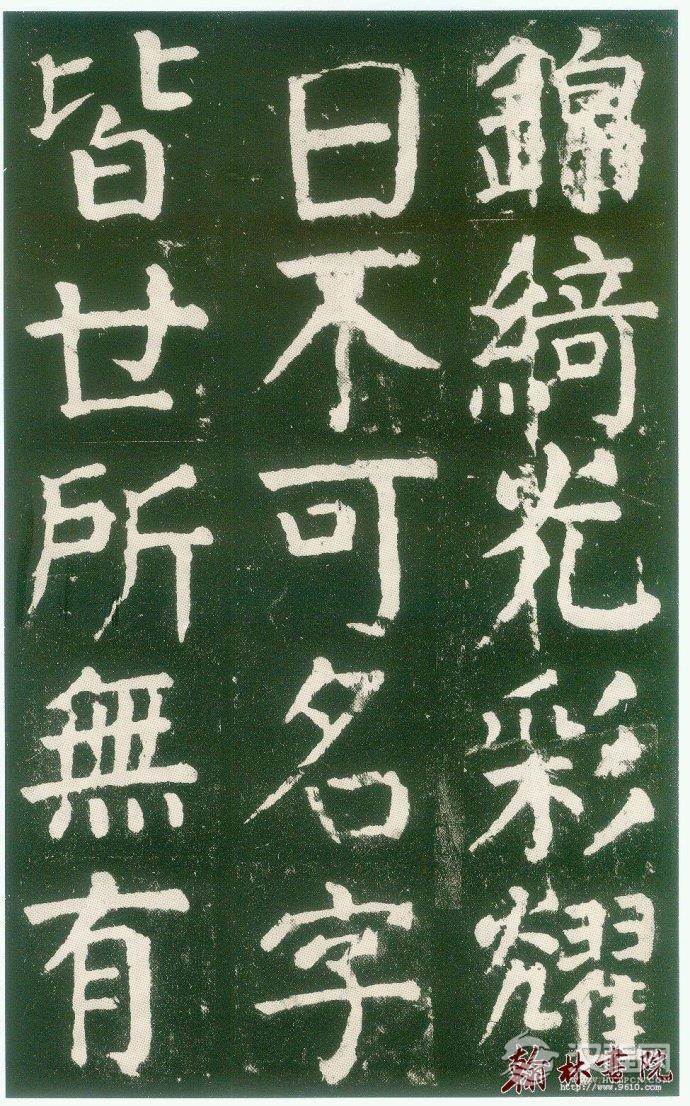 錦綺光彩耀
日不可名字
皆世所無有
翰林書院
http://www.9610.com